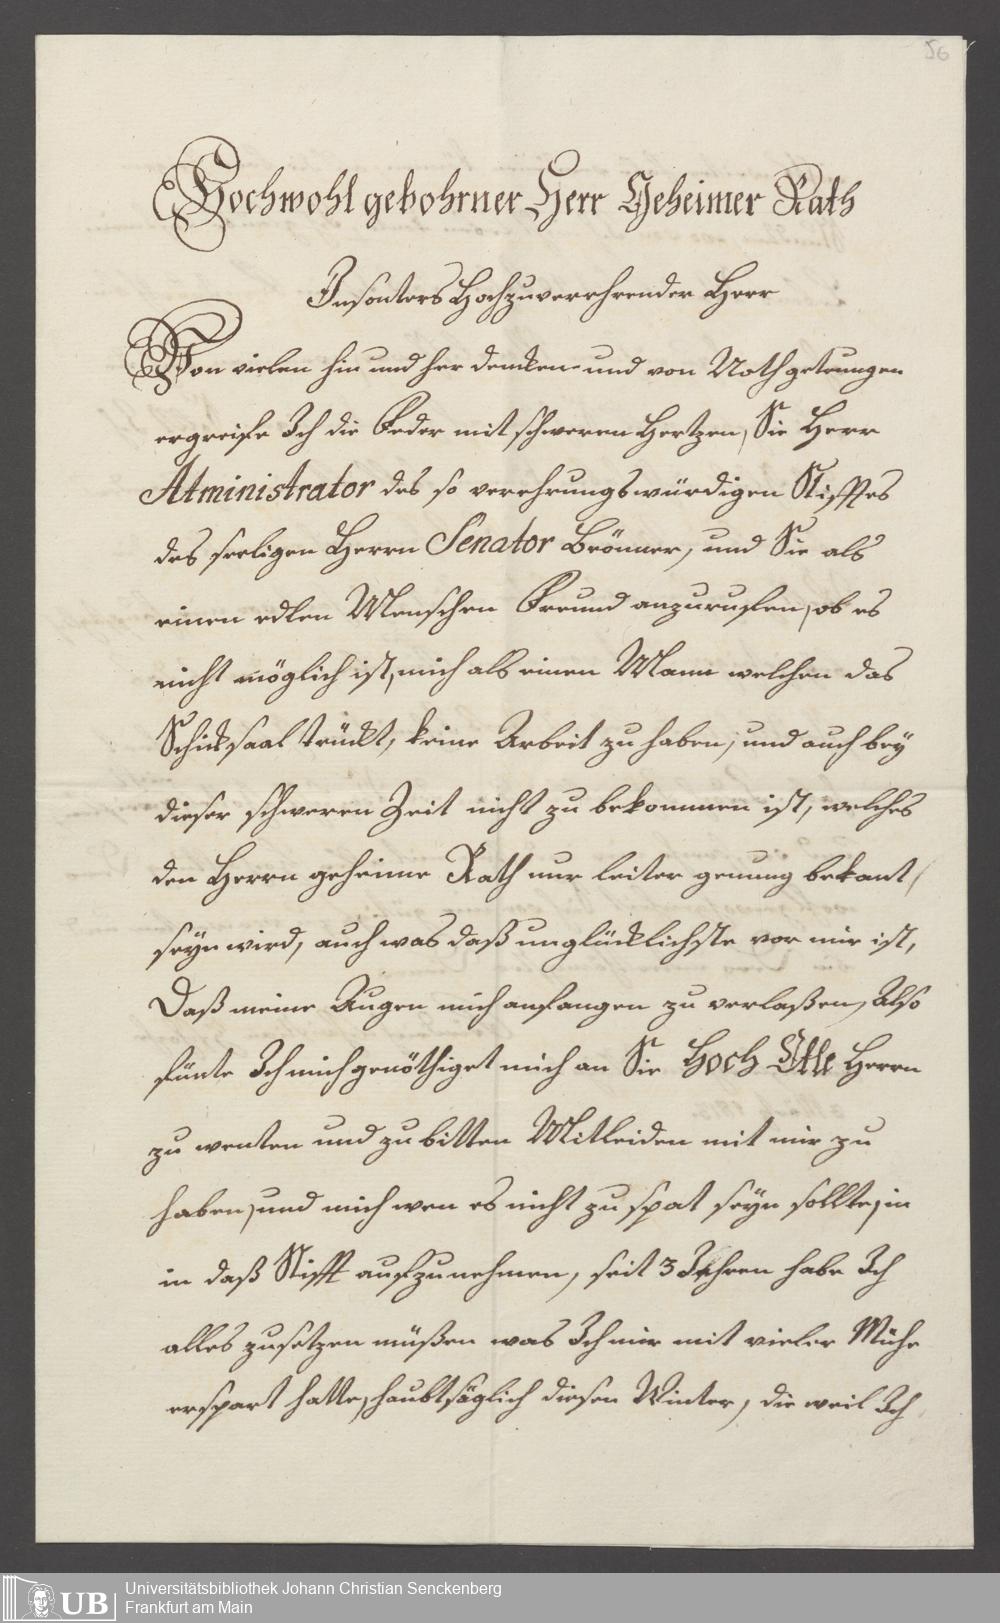 56
Hochwohl gebohrner Herr Geheimer Rath
Insonters Hochzuverrehrender Herr
Von vielen hin und her dencken und von Noth getrungen
ergreife Ich die Feder mit schweren Hertzen, Sie Herr
Atministrator des so verehrungswürdigen Stifftes
des seeligen Herrn Senator Brönner, und Sie als
einen edlen Menschen Freund anzurufen, ob es
nicht möglich ist, mich als einen Mann welchen das
Schicksaal trückt, keine Arbeit zu haben, und auch bey
dieser schweren Zeit nicht zu bekommen ist, welches
den Herrn geheime Rath nur leiter genung bekant
seyn wird, auch was daß unglücklichste vor mir ist,
Daß meine Augen mich anfangen zu verlaßen, Also
fünte Ich mich genöthiget mich an Sie Hoch Etle Herrn
zu wenten und zu bitten Mitleiden mit mir zu
haben, und mich wen es nicht zu spat seyn sollte, in
in daß Stifft aufzunehmen, seit 3 Jahren habe Ich
alles zusetzen müßen was Ich mir mit vieler Mühe
erspart hatte, haubtsäglich diesen Winter, die weil Ich
UB
Universitätsbibliothek Johann Christian Senckenberg
Frankfurt am Main